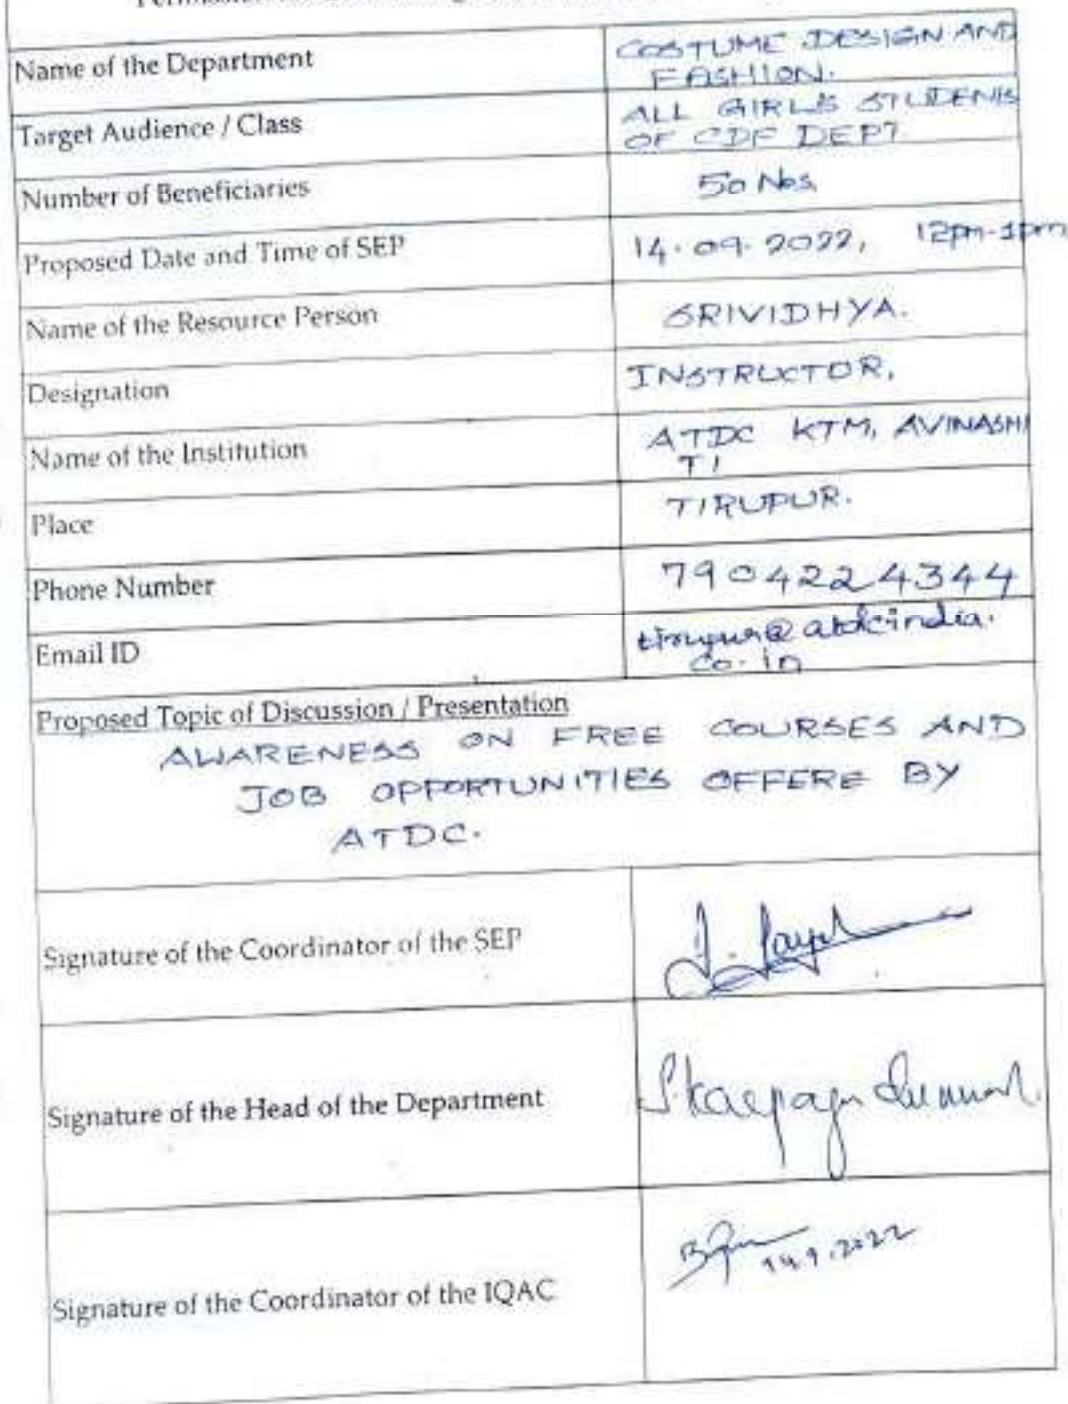 Name of the Department
COSTUME DESIGN AND
FASHION.
Target Audience / Class
ALL GIRLS STUDENTS
OF CDF DEPT
Number of Beneficiaries
50 Nos,
Proposed Date and Time of SEP
14.09.2022, 12pm-1pm
Name of the Resource Person
SRIVIDHYA.
Designation
INSTRUCTOR,
Name of the Institution
ATDC KTM, AVINASHI
TI
Place
TIRUPUR.
Phone Number
7904224344
Email ID
tirupur@atdcindia.
co.in
Proposed Topic of Discussion / Presentation
AWARENESS ON FREE COURSES AND
JOB OPPORTUNITIES OFFERE BY
ATDC.
Signature of the Coordinator of the SEP
Signature of the Head of the Department
Signature of the Coordinator of the IQAC
14.9.2022